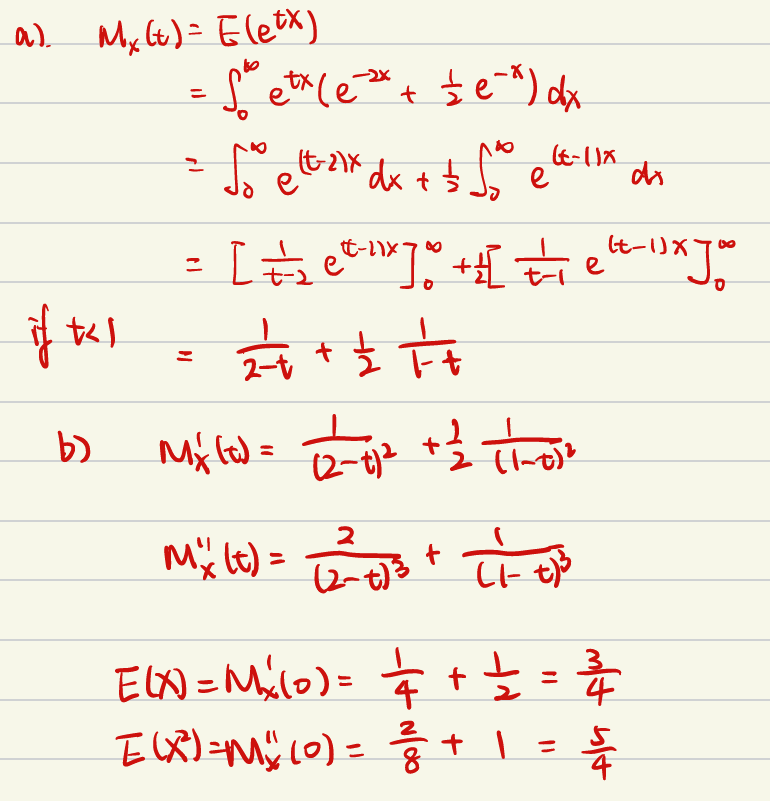 a). Mₓ(t) = E(e^{tX})
= ∫₀^∞ e^{tx}(e^{-2x} + 1/2 e^{-x}) dx
= ∫₀^∞ e^{(t-2)x} dx + 1/2 ∫₀^∞ e^{(t-1)x} dx
= [1/(t-2) e^{(t-2)x}]₀^∞ + 1/2[1/(t-1) e^{(t-1)x}]₀^∞
if t<1 = 1/(2-t) + 1/2 1/(1-t)
b) M'ₓ(t) = 1/(2-t)² + 1/2 1/(1-t)²
M''ₓ(t) = 2/(2-t)³ + 1/(1-t)³
E(X) = M'ₓ(0) = 1/4 + 1/2 = 3/4
E(X²) = M''ₓ(0) = 2/8 + 1 = 5/4